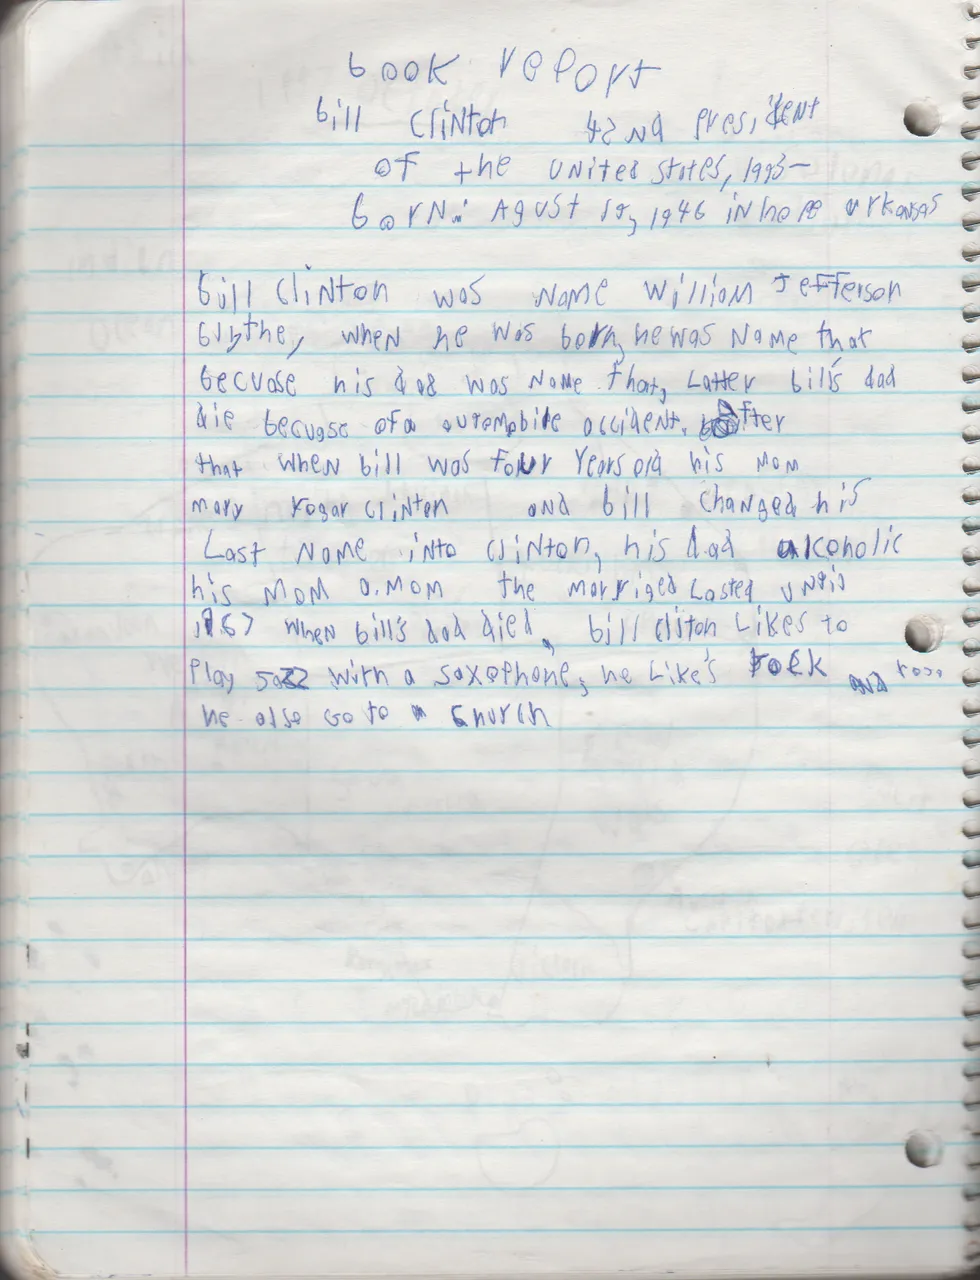 book report
bill clinton 42nd president
of the united states, 1993-
born: Agust 19, 1946 in hope arkansas
bill clinton was name william Jefferson
blythe, when he was born, he was name that
becuase his dad was name that, Latter bill's dad
die becuase of a automobile accident. After
that when bill was four years old his mom
mary rogar clinten and bill changed his
Last name into clinton, his dad alcoholic
his mom a.mom the marriged Lasted
1967 when bill's dad died, bill cliton Likes to
Play jazz with a saxophone, he Like's rock and
he also go to a church